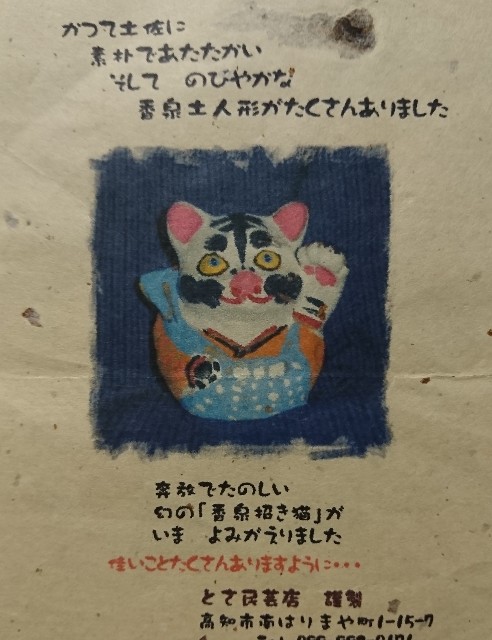 かつて土佐に
素朴であたたかい
そして のびやかな
香泉土人形がたくさんありました
奔放でたのしい
幻の「香泉招き猫」が
いま よみがえりました
佳いことたくさんありますように・・・
とさ民芸店 謹製
高知市南はりまや町1-15-7